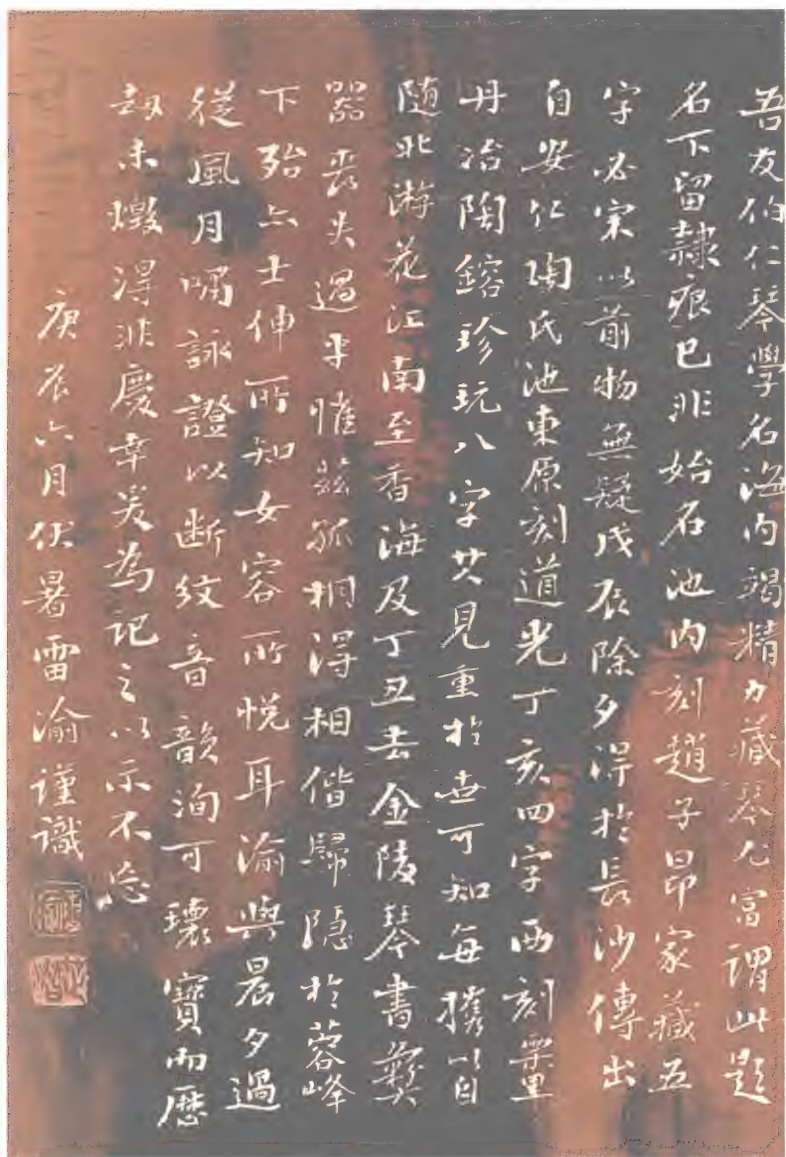 吾友伯仁琴學名海內竭精力藏琴尤富謂此題
名下留隸痕已非始石池內刻趙子昂家藏五
字必宋以前物無疑戊辰除夕得於長沙傳出
自安仁陶氏池東原刻道光丁亥四字西刻栗里
丹冶陶鎔珍玩八字其見重於世可知每攜以自
隨北游花江南至香海及丁丑去金陵琴書彝
器喪失過半惟茲孤桐得相偕歸隱於蓉峰
下殆亦士伸所知女容所悅耳渝與晨夕過
從風月嘯詠證以斷紋音韻洵可瓌寶而歷
劫未燬得非慶幸爰為記之以示不忘
庚辰六月伏暑雷渝謹識